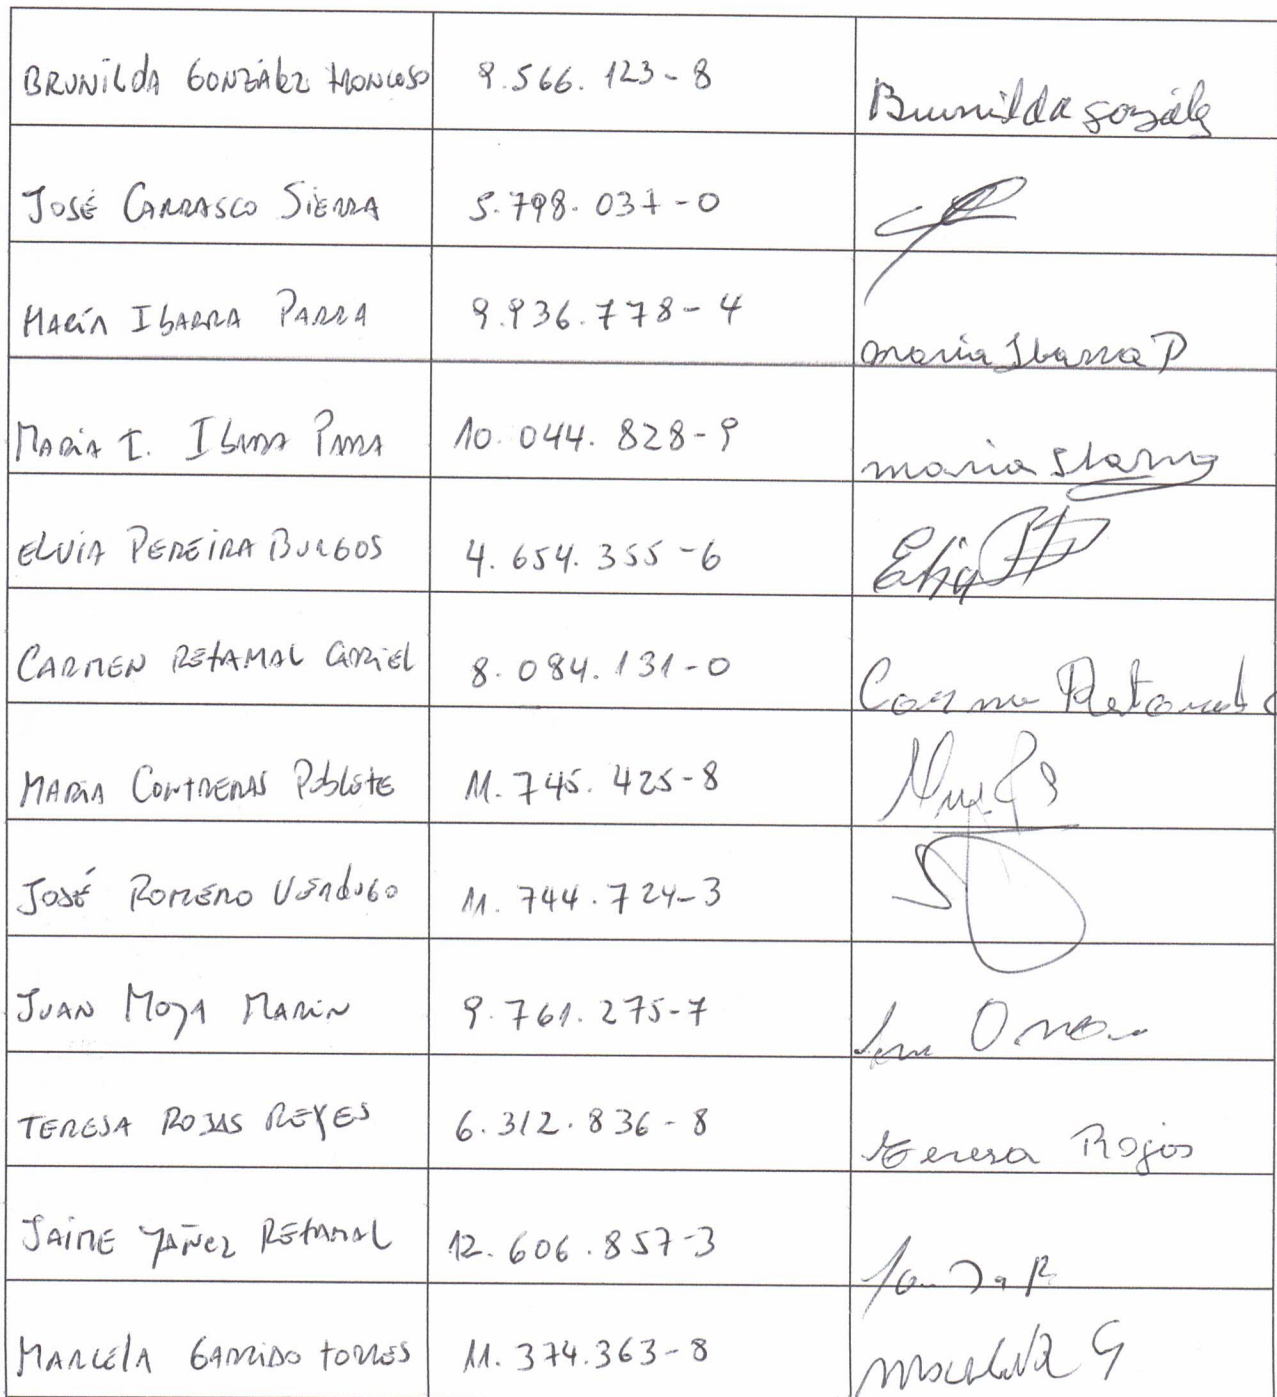 BRUNILDA GONZÁLEZ MONCOSO 9.566.123-8 Brunilda Gonzály
JOSÉ CARRASCO SIERRA 5.798.037-0
MARÍA IBARRA PARRA 9.936.778-4 maria Ibarra P
MARÍA I. IBARRA PARRA 10.044.828-9 maria Ibarra
ELVIA PEREIRA BURGOS 4.654.355-6 Elvia
CARMEN RETAMAL CARRIEL 8.084.131-0 Carmen Retamal C
MARÍA CONTRERAS POBLETE 11.745.425-8
JOSÉ ROMERO VERDUGO 11.744.724-3
JUAN MOYA MARÍN 9.761.275-7
TERESA ROJAS REYES 6.312.836-8 teresa Rojas
JAIME YÁÑEZ RETAMAL 12.606.857-3
MARCELA GARRIDO TORRES 11.374.363-8 Marcela G